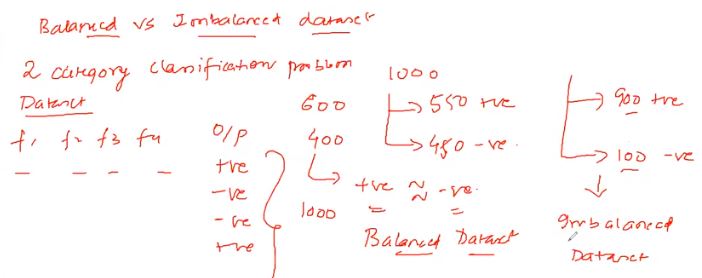 Balanced vs Imbalanced dataset
2 category classification problem
Dataset
f1 f2 f3 f4
O/P
+ve
-ve
-ve
+ve
600
400
1000
1000
550 +ve
450 -ve
+ve ≈ -ve
Balanced Dataset
900 +ve
100 -ve
Imbalanced
Dataset